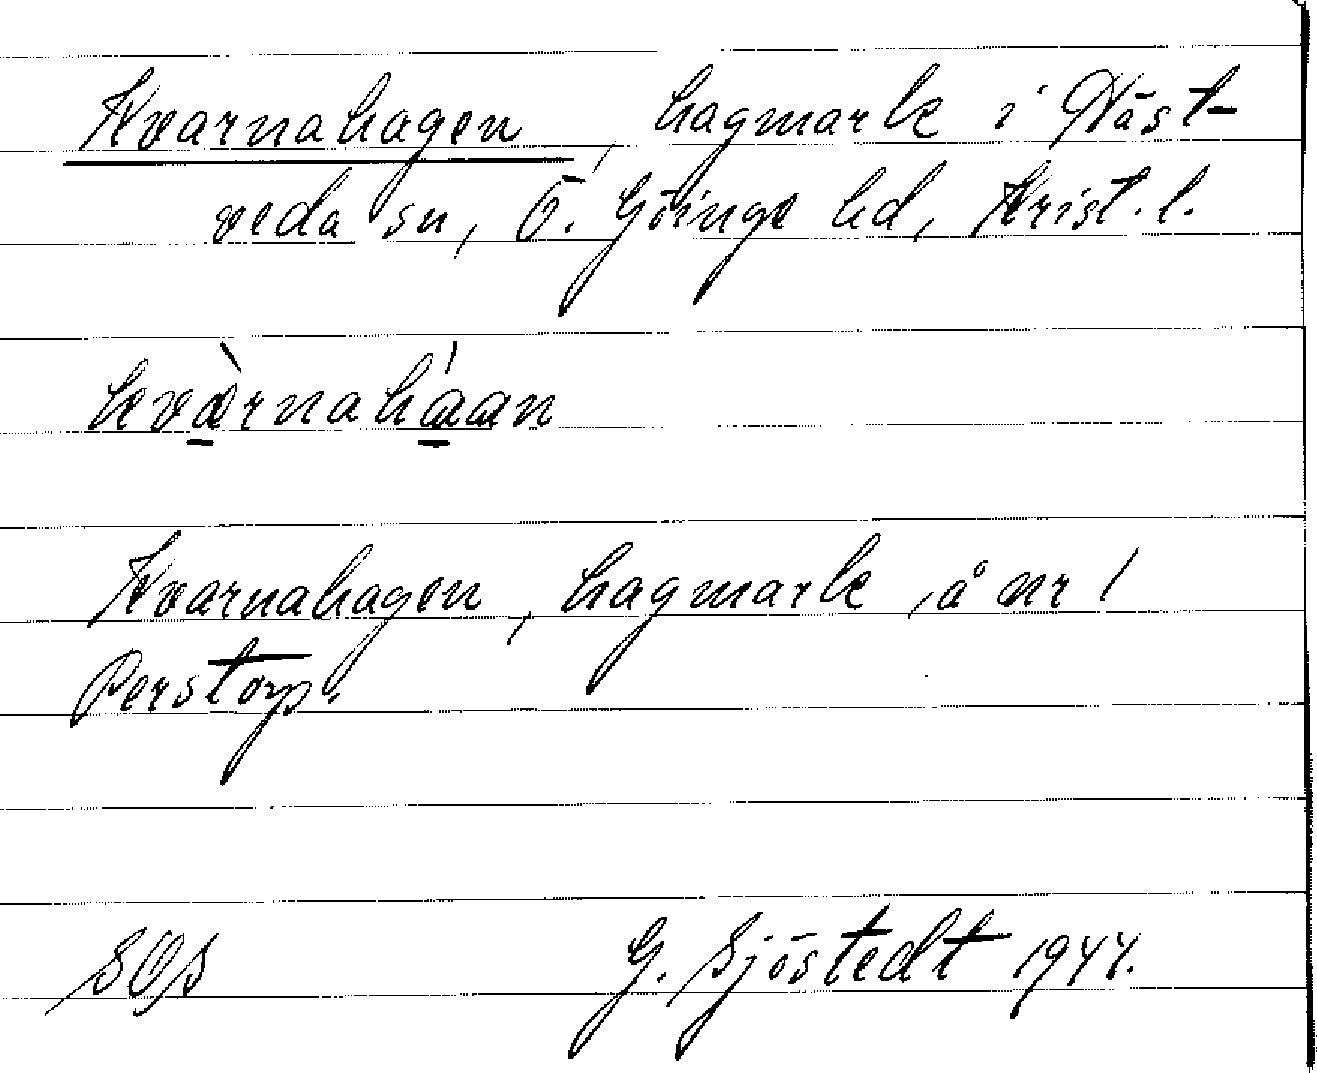 Kvarnahagen, hagmark i Väst-
veda sn, Ö. Göinge hd, Krist. l.
kvàrnaháan
Kvarnahagen, hagmark, å nr 1
Perstorp.
SOS
G. Sjöstedt 1944.